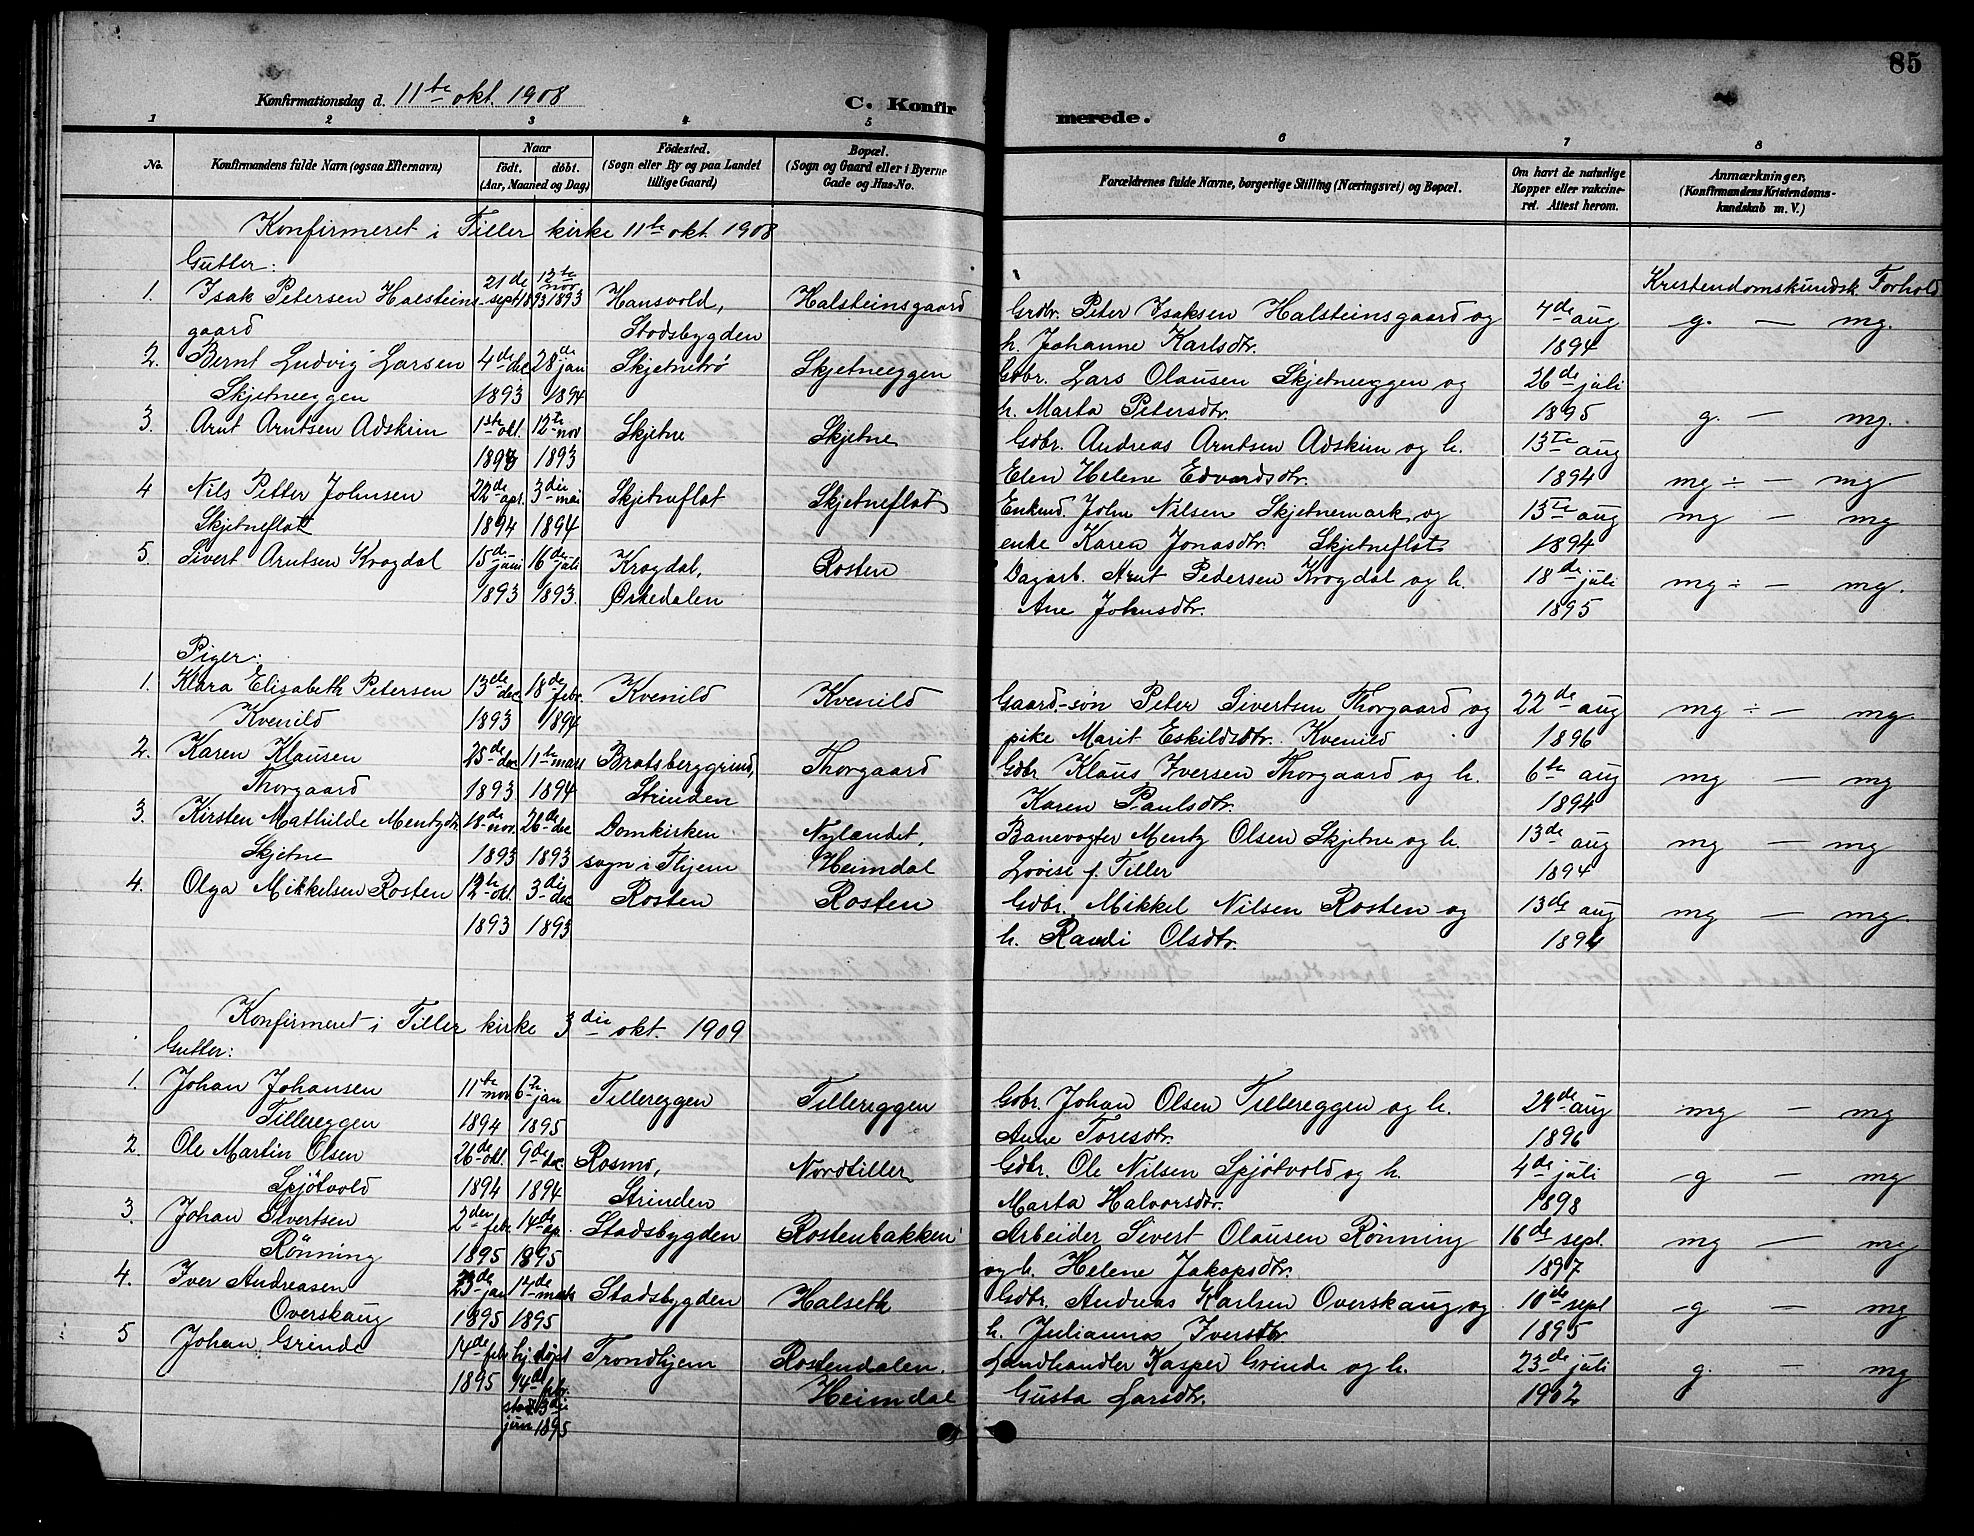 85
Konfirmationsdag d. 11te okt. 1908
C. Konfirmerede.
1 2 3 4 5 6 7 8
No. Konfirmandens fulde Navn (ogsaa Efternavn) Naar födt. döbt. (Aar, Maaned og Dag) Födested. (Sogn eller By og paa Landet tillige Gaard) Bopæl. (Sogn og Gaard eller i Byerne Gade og Hus-No. Forældrenes fulde Navne, borgerlige Stilling (Næringsvei) og Bopæl. Om havt de naturlige Kopper eller vakcineret. Attest herom. Anmærkninger. (Konfirmandens Kristendomskundskab m. V.)
Konfirmeret i Tiller kirke 11te okt. 1908
Gutter:
Kristendomskundsk. Forhold
1. Isak Petersen Halsteins- 21de sept 1893 12te nov 1893 Hansvold, Halsteinsgaard Grdbr. Peter Isaksen Halsteinsgaard og 4de aug g. — mg.
gaard Stodsbygden h. Johanne Karlsdtr. 1894
2. Bernt Ludvig Larsen 4de dec 28de jan Skjetnetrø Skjetneeggen Gdbr. Lars Olausen Skjetneeggen og 26de juli
Skjetneeggen 1893 1894 h. Marta Petersdtr. 1895 g. — mg.
3. Arnt Arntsen Adskim 1ste okt. 12te nov Skjetne Skjetne Gdbr. Andreas Arntsen Adskim og h. 13de aug
1893 1893 Elen Helene Edvardsdtr. 1894 mg ÷ — mg
4 Nils Petter Johnsen 22de apr. 3die mai Skjetneflat Skjetneflat Enkemd. John Nilsen Skjetnemark og 13de aug mg — mg
Skjetneflatt 1894 1894 enke Karen Jonasdtr. Skjetneflat 1894
5. Sivert Arntsen Krogdal 15de juni 16de juli Krogdal, Rosten Dagarb. Arnt Pedersen Krogdal og h. 18de juli mg ÷ — mg.
1893 1893. Ørkedalen Ane Johnsdtr. 1895
Piger:
1. Klara Elisabeth Petersen 13de dec 18de febr. Kvenild Kvenild Gaard.-søn Peter Sivertsen Thorgaard og 22de aug mg ÷ — mg
Kvenild 1893 1894 pike Marit Eskildsdtr. Kvenild 1896
2. Karen Klausen 25de dec 11te mars Bratsberggrind, Thorgaard Gdbr Klaus Iversen Thorgaard og h. 6te aug mg — mg
Thorgaard 1893 1894 Strinden Karen Paulsdtr. 1894
3. Kirsten Mathilde Mentzdtr. 18de nov. 26de dec Domkirken Nylændet, Banevogter Mentz Olsen Skjetne og h. 13de aug mg — mg
Skjetne 1893 1893 sogn i Thjem Heimdal Lovise f. Tiller 1894
4. Olga Mikkelsen Rosten 12te okt. 3die dec Rosten Rosten Gdbr. Mikkel Nilsen Rosten og 13de aug mg — mg.
1893 1893 h. Randi Olsdtr. 1894
Konfirmeret i Tiller kirke 3die okt. 1909
Gutter:
1. Johan Johansen 11te nov 6te jan Tillereggen Tillereggen Gdbr. Johan Olsen Tillereggen og h. 29de aug mg — mg
Tillereggen 1894 1895 Anne Toresdtr. 1896
2. Ole Martin Olsen 26de okt. 9de dec Rosmo, Nordtiller Gdbr. Ole Nilsen Spjøtvold og h. 4de juli g — mg
Spjøtvold 1894 1894 Strinden Marta Halvorsdtr. 1898
3. Johan Sivertsen 2den febr. 14de ap. Stadsbygden Rostenbakken Arbeider Sivert Olausen Rönning 16de sept. mg — mg
Rönning 1895 1895 og h. Helene Jakopsdtr. 1897
4. Iver Andreasen 23de jan 17de mars Stadsbygden Halseth Gdbr. Andreas Karlsen Overskaug og 10de sept g — mg
Overskaug 1895 1895 h. Julianna Iversdtr. 1895
5 Johan Grinde 14de febr hj døpt Trondhjem Rostendalen. Landhandler Kasper Grinde og h. 23de juli g. — mg
1895 14de febr. Heimdal Gusta Larsdtr. 1902
stad 3die
juni 1895